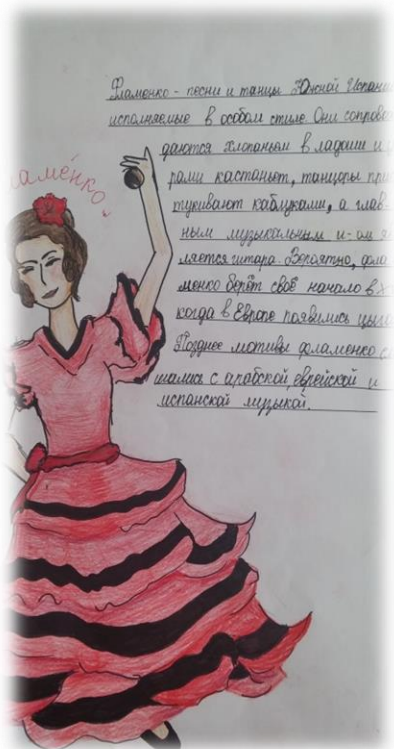 Фламенко - песни и танцы Южной Испани
исполняемые в особом стиле. Они сопрово
даются хлопаньем в ладоши и у
рами кастаньет, танцоры при
тукивают каблуками, а глав-
ным музыкальным и-ом я
ляется гитара. Вероятно, фла
менко берёт своё начало в
когда в Европе появились цыга
Позднее мотивы фламенко с
шались с арабской, еврейской и
испанской музыкой.
ламенко